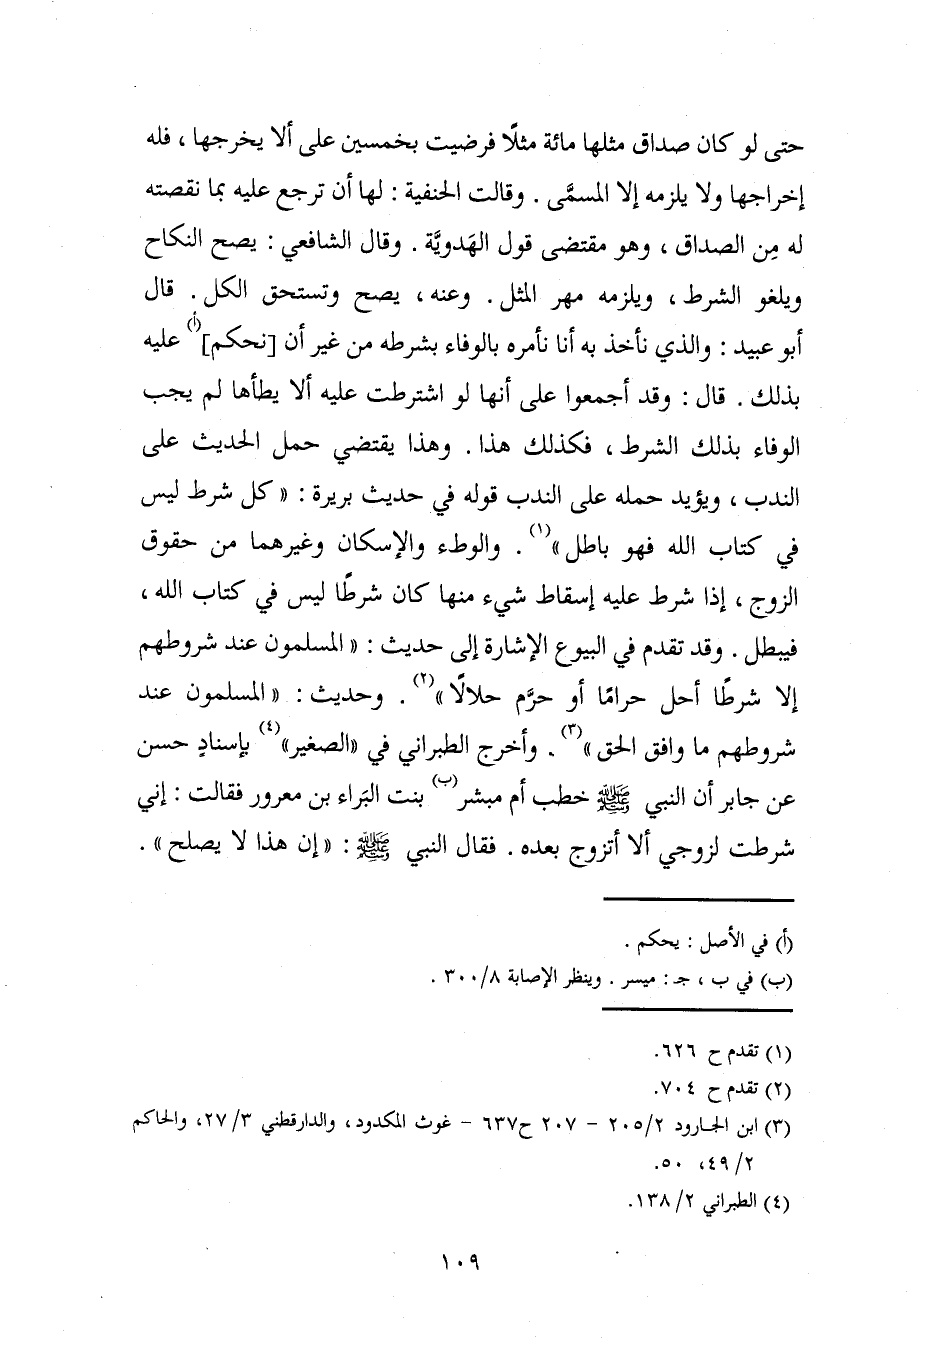 حتى لو كان صداق مثلها مائة مثلًا فرضيت بخمسين على ألا يخرجها ، فله
إخراجها ولا يلزمه إلا المسمَّى . وقالت الحنفية : لها أن ترجع عليه بما نقصته
له مِن الصداق ، وهو مقتضى قول الهَدويَّة . وقال الشافعي : يصح النكاح
ويلغو الشرط ، ويلزمه مهر المثل . وعنه ، يصح وتستحق الكل . قال
أبو عبيد : والذي نأخذ به أنا نأمره بالوفاء بشرطه من غير أن [نحكم](أ) عليه
بذلك . قال : وقد أجمعوا على أنها لو اشترطت عليه ألا يطأها لم يجب
الوفاء بذلك الشرط ، فكذلك هذا . وهذا يقتضي حمل الحديث على
الندب ، ويؤيد حمله على الندب قوله في حديث بريرة : « كل شرط ليس
في كتاب الله فهو باطل »(١) . والوطء والإسكان وغيرهما من حقوق
الزوج ، إذا شرط عليه إسقاط شيء منها كان شرطًا ليس في كتاب الله ،
فيبطل . وقد تقدم في البيوع الإشارة إلى حديث : « المسلمون عند شروطهم
إلا شرطًا أحل حرامًا أو حرَّم حلالًا »(٢) . وحديث : « المسلمون عند
شروطهم ما وافق الحق »(٣) . وأخرج الطبراني في «الصغير»(٤) بإسنادٍ حسن
عن جابر أن النبي ﷺ خطب أم مبشر(ب) بنت البَراء بن معرور فقالت : إني
شرطت لزوجي ألا أتزوج بعده . فقال النبي ﷺ : « إن هذا لا يصلح » .
(أ) في الأصل : يحكم .
(ب) في ب ، جـ : ميسر . وينظر الإصابة ٨/ ٣٠٠ .
(١) تقدم ح ٦٢٦.
(٢) تقدم ح ٧٠٤.
(٣) ابن الجارود ٢/ ٢٠٥ - ٢٠٧ ح٦٣٧ - غوث المكدود، والدارقطني ٣/ ٢٧، والحاكم
٢/ ٤٩، ٥٠.
(٤) الطبراني ٢/ ١٣٨.
١٠٩